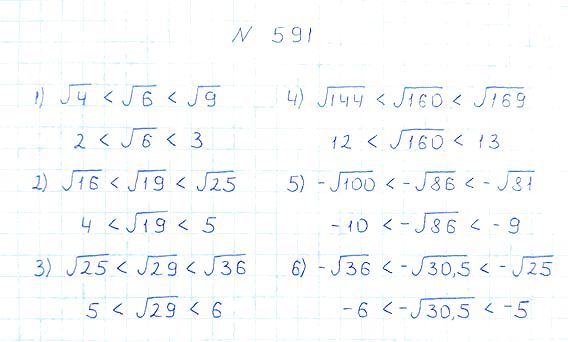 N 591
1) √4 < √6 < √9
2 < √6 < 3
2) √16 < √19 < √25
4 < √19 < 5
3) √25 < √29 < √36
5 < √29 < 6
4) √144 < √160 < √169
12 < √160 < 13
5) -√100 < -√86 < -√81
-10 < -√86 < -9
6) -√36 < -√30,5 < -√25
-6 < -√30,5 < -5